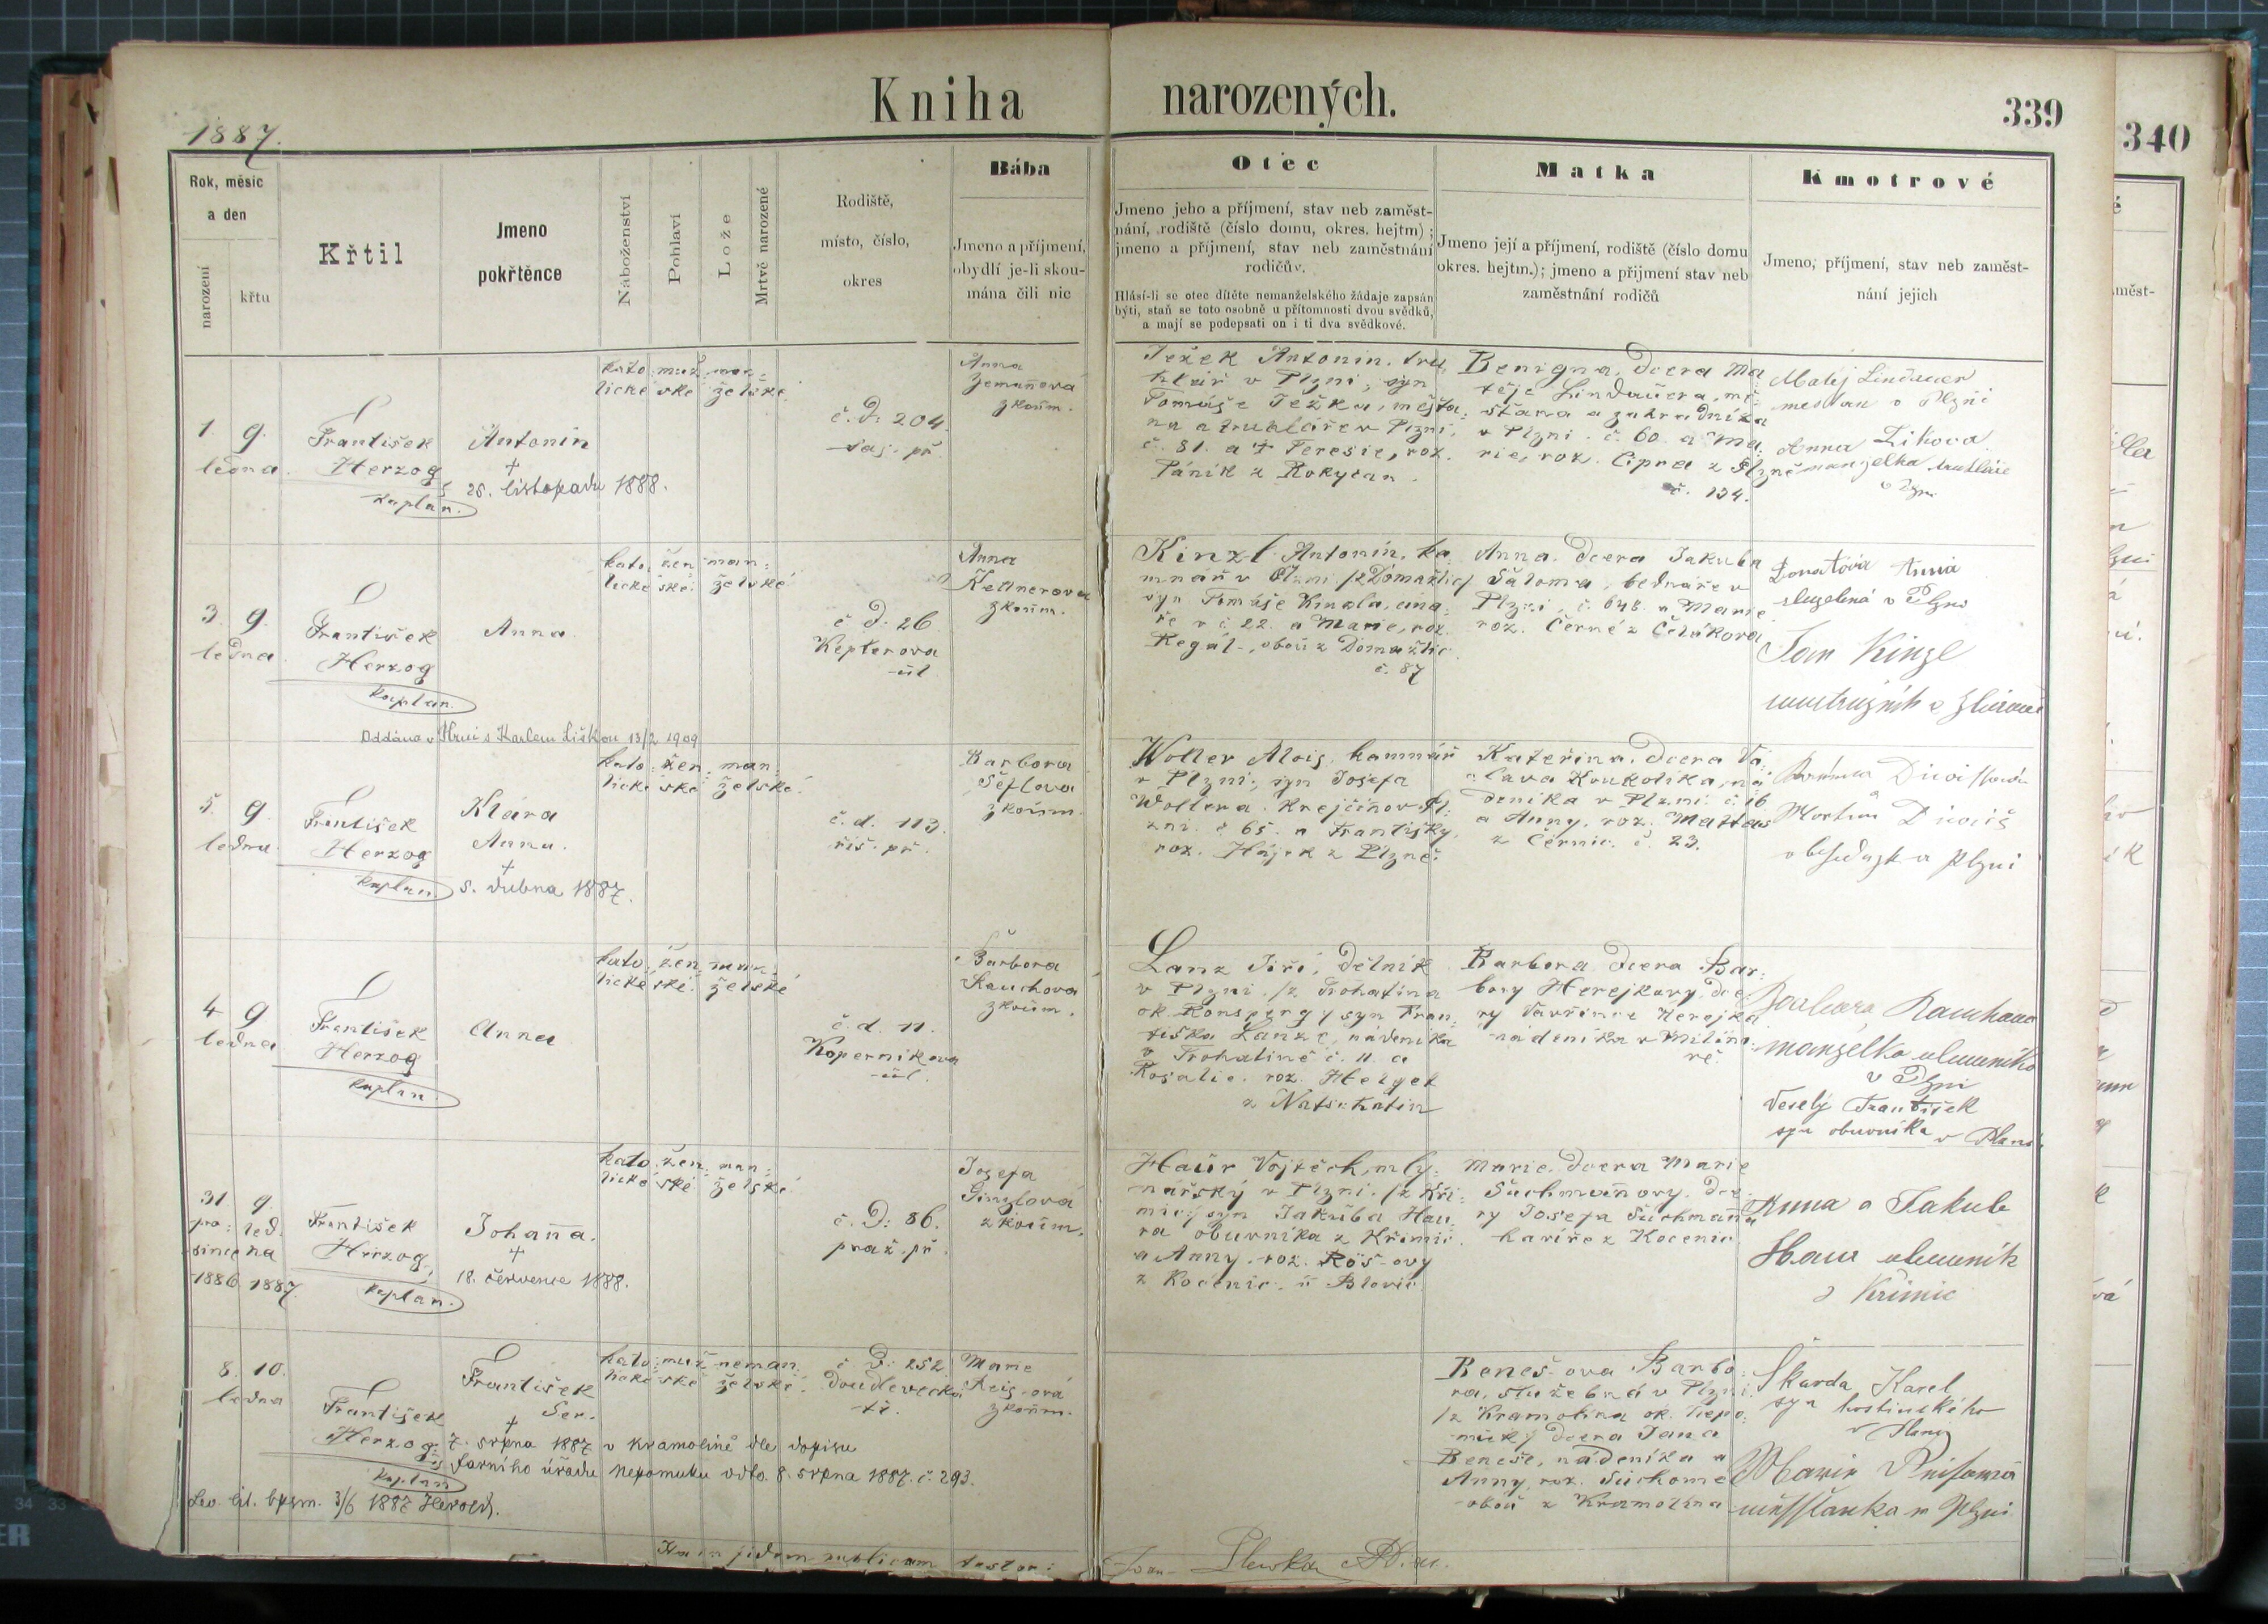 Kniha narozených.
339
340
1887.
Rok, měsíc
a den
narození
křtu
Křtil
Jmeno
pokřtěnce
Náboženství
Pohlaví
Lože
Mrtvě narozené
Rodiště,
místo, číslo,
okres
Bába
Jmeno a příjmení,
obydlí je-li skou-
mána čili nic
Otec
Jmeno jeho a příjmení, stav neb zaměst-
nání, rodiště (číslo domu, okres. hejtm) ;
jmeno a příjmení, stav neb zaměstnání
rodičův.
Hlásí-li se otec dítěte nemanželského žádaje zapsán
býti, staň se toto osobně u přítomnosti dvou svědků,
a mají se podepsati on i ti dva svědkové.
Matka
Jmeno její a příjmení, rodiště (číslo domu
okres. hejtm.); jmeno a přijmení stav neb
zaměstnání rodičů
Kmotrové
Jmeno, příjmení, stav neb zaměst-
nání jejich
1. 9.
ledna.
František
Herzog
kaplan.
Antonín
†
25. listopadu 1888.
kato: muž: man:
lické ské želské
č. D: 204.
saj. př.
Anna
Zemanová
zkoum.
Ježek Antonín, tru
hlář v Plzni, syn
Tomáše Ježka, měšťa:
na a truhláře v Plzni,
č. 81. a † Teresie, roz.
Pánik z Rokycan.
Benigna, dcera Ma
těje Lindauera, mě:
šťana a zahradníka
v Plzni. č. 60. a Ma:
rie, roz. Cipra z Plzně
č. 134.
Matěj Lindauer
mešťan v Plzni
Anna
manželka truhláře
v Plzni
3. 9.
ledna.
František
Herzog
kaplan.
Anna.
Oddána v s Karlem Liškou 13/2 1909
kato: žen: man:
lické ské: želské
č. D: 26
Keplerova
ul
Anna
Kellnerova
zkoum.
Kinzl Antonín, ka
mnář v Plzni /z Domažlic/
syn Tomáše
ře v č. 22. a Marie, roz.
Regál-, obou z Domažlic
č. 87
Anna, dcera Jakuba
Šaloma, bednáře v
Plzni, č. 648. a Marie
roz. Černé z
Anna
služebná v Plzni
Jan Kinzl
5. 9.
ledna.
František
Herzog
kaplan
Klára
Anna.
†
5. dubna 1887.
kato: žen: man:
lické ské želské.
č. d. 113.
říš. př.
Barbora
Šeflova
zkoum.
Woller Alois, kamnář
v Plzni, syn Josefa
Woltera, krejčího v Pl:
zni. č 65. a Františky,
roz. Hájek z Plzně.
Kateřina, dcera Vá:
clava ná
deníka v Plzni č. 16
a Anny, roz.
z Černic. č. 23.
Martin
v Plzni
4 9
ledna
František
Herzog
kaplan.
Anna
kato: žen: man:
lické ské: želské
č. d. 11.
Kopernikova
ul.
Barbora
Kauchova
zkoum.
Lanz Jiří, dělník
v Plzni. /z Trohatína
ok. Ronsperg/ syn Fran:
tiška Lanze, nádeníka
v Trohatíně č. 11. a
Rosalie. roz. Helget
z Natschetin
Barbora dcera Bar:
bory Herejkovy, dce:
ry Vavřince Herejka
nádeníka v Milína:
vě.
Barbora
manželka
v Plzni
Veselý František
syn obuvníka v
31. 9.
pro: led:
since na
1886. 1887.
František
Herzog,
kaplan.
Johanna.
†
18. července 1888.
kato: žen: man:
lické ské: želské
č. D: 86.
praž. př.
Josefa
Ginzlová
zkoum.
Haur Vojtěch, mly:
nářský v Plzni. /z Kři:
mic/ syn Jakuba Hau:
ra obuvníka z Křimic.
a Anny, roz. Röš-ovy
z Kocenic. u Blovic.
Marie, dcera Marie
Suchmanovy, dce:
ry Josefa Suchmana
kováře z Kocenic
Anna a Jakub
Haur
z Křimic
8. 10.
ledna
František
Herzog.
kaplan
František
Ser.
†
7. srpna 1887 v Kramolíně dle dopisu
farního úřadu Nepomuku ddto. 8. srpna 1887. č. 293.
3/6 1887 Herold.
kato: muž neman:
lické ské želské.
č. D: 252
Doudlevecká
tř.
Marie
Reis-ová
zkoum.
Beneš-ova Barbo:
ra, služebná v Plzni.
/z Kramolína ok. Nepo:
muk/ dcera Jana
Beneše, nádeníka a
Anny, roz. Suchome
obou z Kramolína
Škarda Karel
syn hostinského
v Plzni
Marie
měšťanka v Plzni